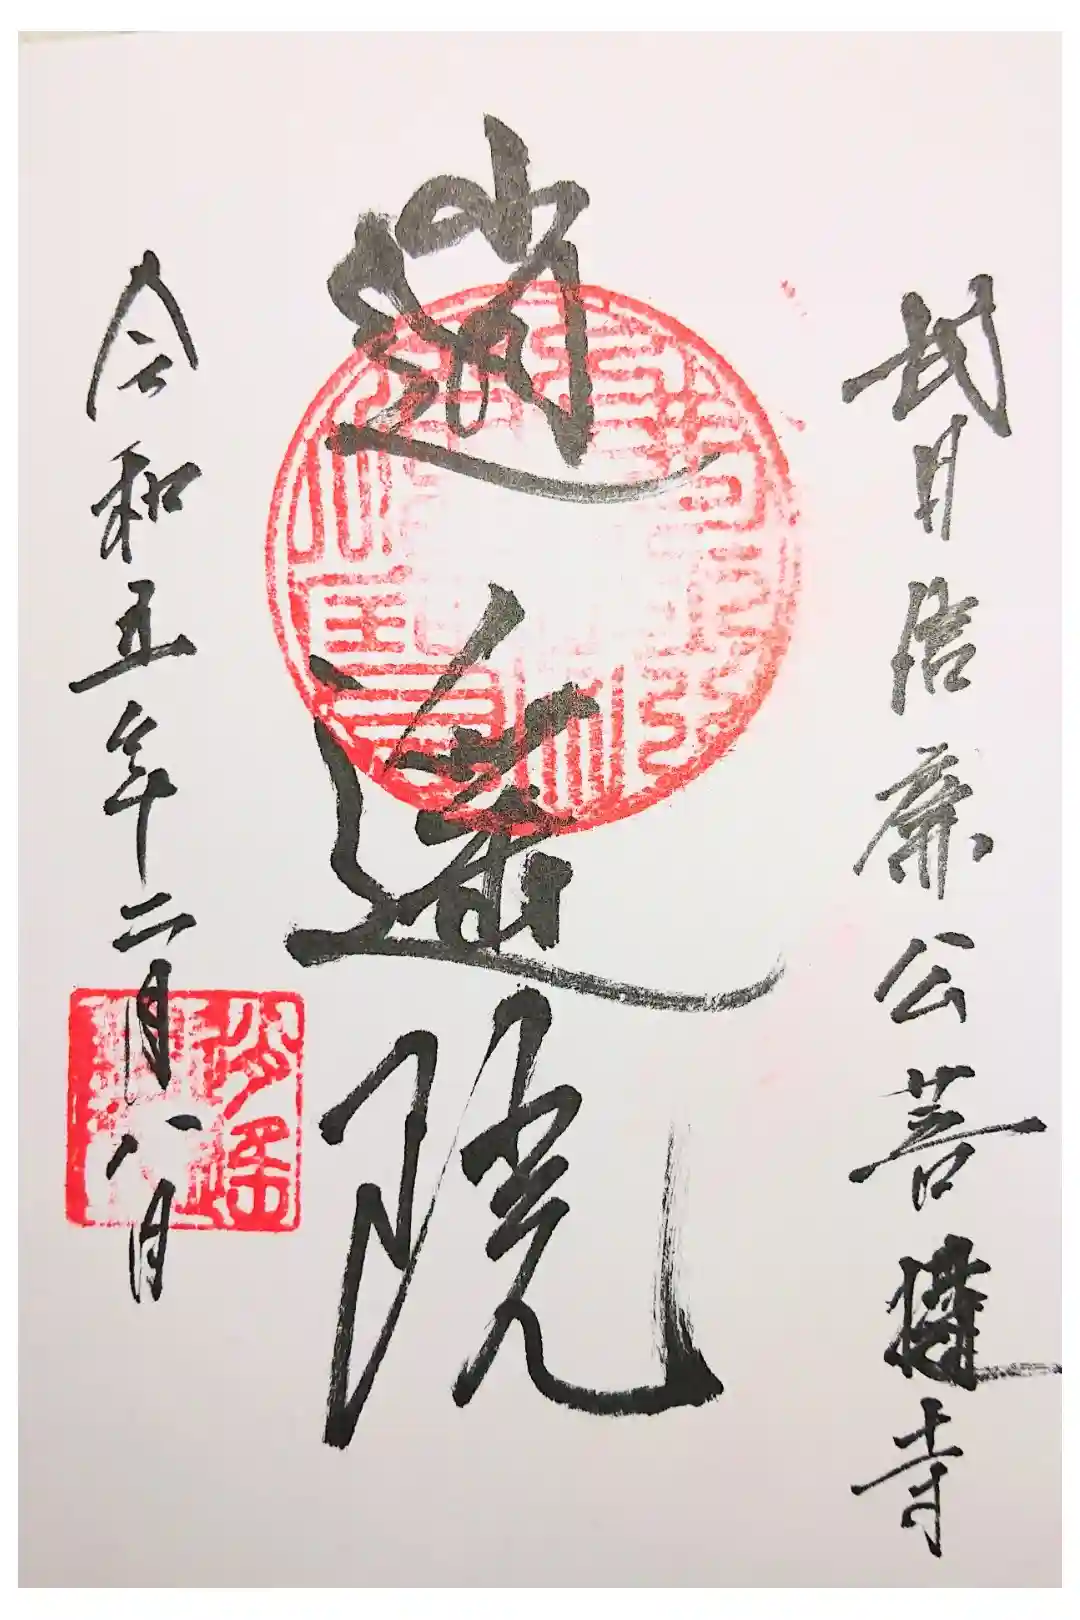 武田信廉公菩提寺
逍遥院
令和五年二月八日